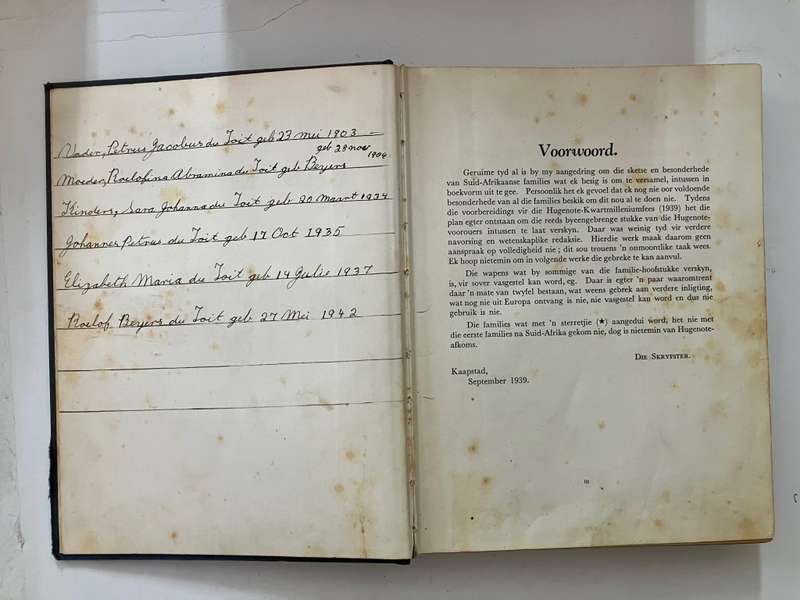 Vader, Petrus Jacobus du Toit geb 23 Mei 1903 —
geb 28 nov 1904
Moeder, Roelofina Abramina du Toit geb Beyers
Kinders, Sara Johanna du Toit geb 20 Maart 1934
Johannes Petrus du Toit geb 17 Oct 1935
Elizabeth Maria du Toit geb 14 Julie 1937
Roelof Beyers du Toit geb 27 Mei 1942
Voorwoord.
Geruime tyd al is by my aangedring om die sketse en besonderhede
van Suid-Afrikaanse families wat ek besig is om te versamel, intussen in
boekvorm uit te gee. Persoonlik het ek gevoel dat ek nog nie oor voldoende
besonderhede van al die families beskik om dit nou al te doen nie. Tydens
die voorbereidings vir die Hugenote-Kwartmilleniumfees (1939) het die
plan egter ontstaan om die reeds byeengebrenge stukke van die Hugenote-
voorouers intussen te laat verskyn. Daar was weinig tyd vir verdere
navorsing en wetenskaplike redaksie. Hierdie werk maak daarom geen
aanspraak op volledigheid nie; dit sou trouens 'n onmoontlike taak wees.
Ek hoop nietemin om in volgende werke die gebreke te kan aanvul.
Die wapens wat by sommige van die familie-hoofstukke verskyn,
is, vir sover vasgestel kan word, eg. Daar is egter 'n paar waaromtrent
daar 'n mate van twyfel bestaan, wat weens gebrek aan verdere inligting,
wat nog nie uit Europa ontvang is nie, nie vasgestel kan word en dus nie
gebruik is nie.
Die families wat met 'n sterretjie (★) aangedui word, het nie met
die eerste families na Suid-Afrika gekom nie, dog is nietemin van Hugenote-
afkoms.
Die Skryfster.
Kaapstad,
September 1939.
III